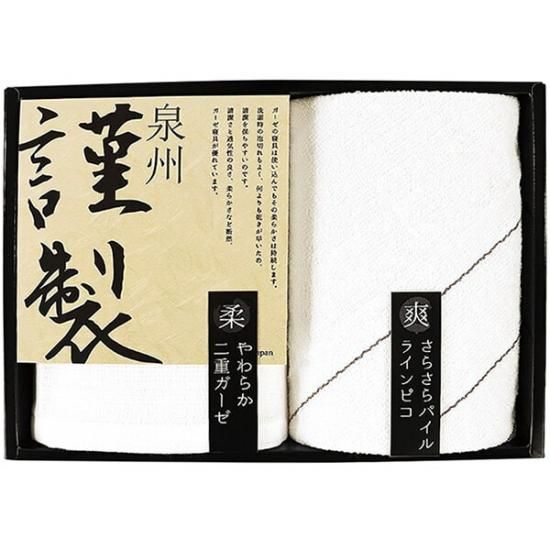 泉州
謹製
ガーゼの寝具は使い込んでもその柔らかさは持続します。
洗濯時の泡切れもよく、何よりも乾きが早いため、
清潔を保ちやすいのです。
清潔さと通気性の良さ、柔らかさなど断然、
ガーゼ寝具が優れています。
柔
やわらか
二重ガーゼ
爽
さらさらパイル
ラインピコ